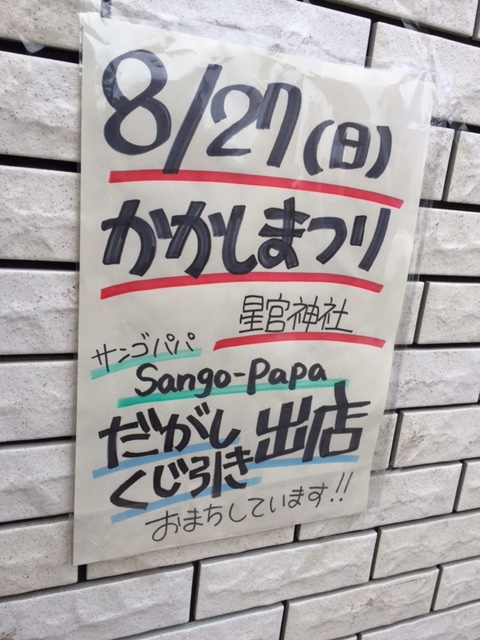 8/27(日)
かかしまつり
星宮神社
サンゴパパ
Sango-Papa
だがし
くじ引き
出店
おまちしています!!